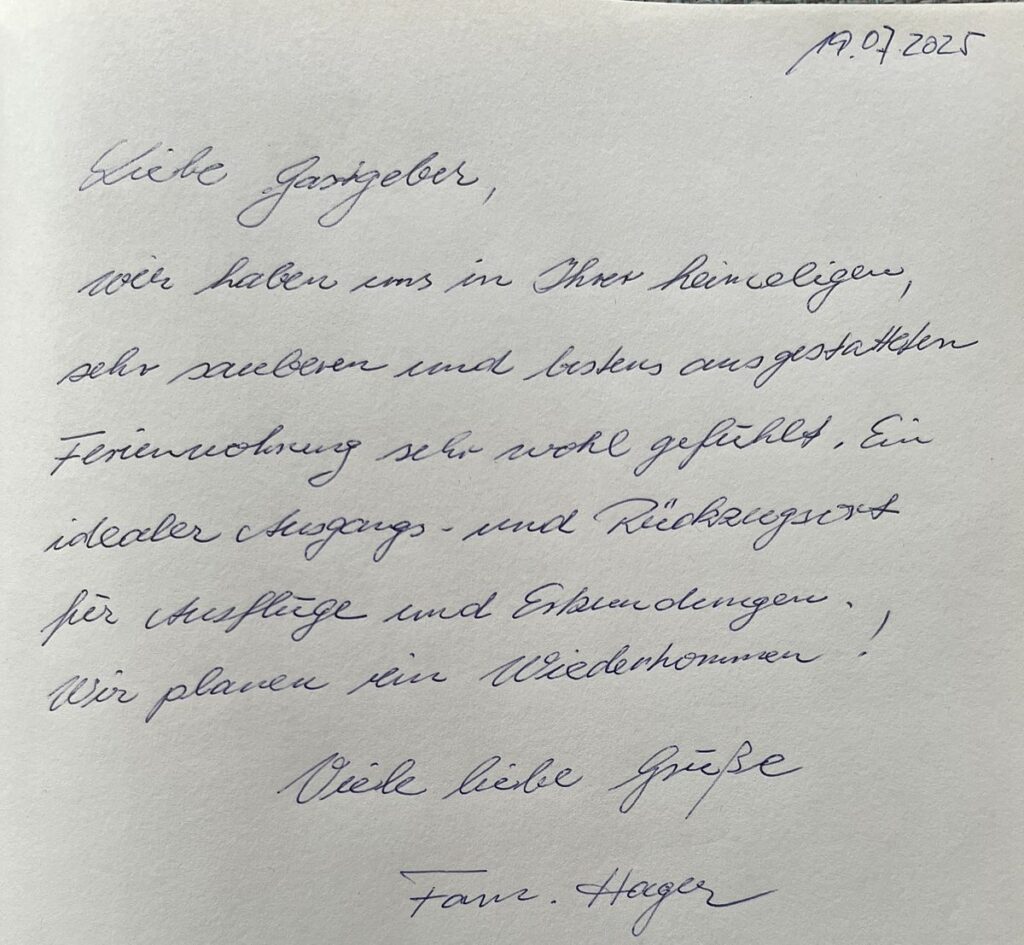 19.07.2025
Liebe Gastgeber,
wir haben uns in Ihrer heimeligen,
sehr sauberen und bestens ausgestatteten
Ferienwohnung sehr wohl gefühlt. Ein
idealer Ausgangs- und Rückzugsort
für Ausflüge und Erkundungen.
Wir planen ein Wiederkommen!
Viele liebe Grüße
Fam. Hager